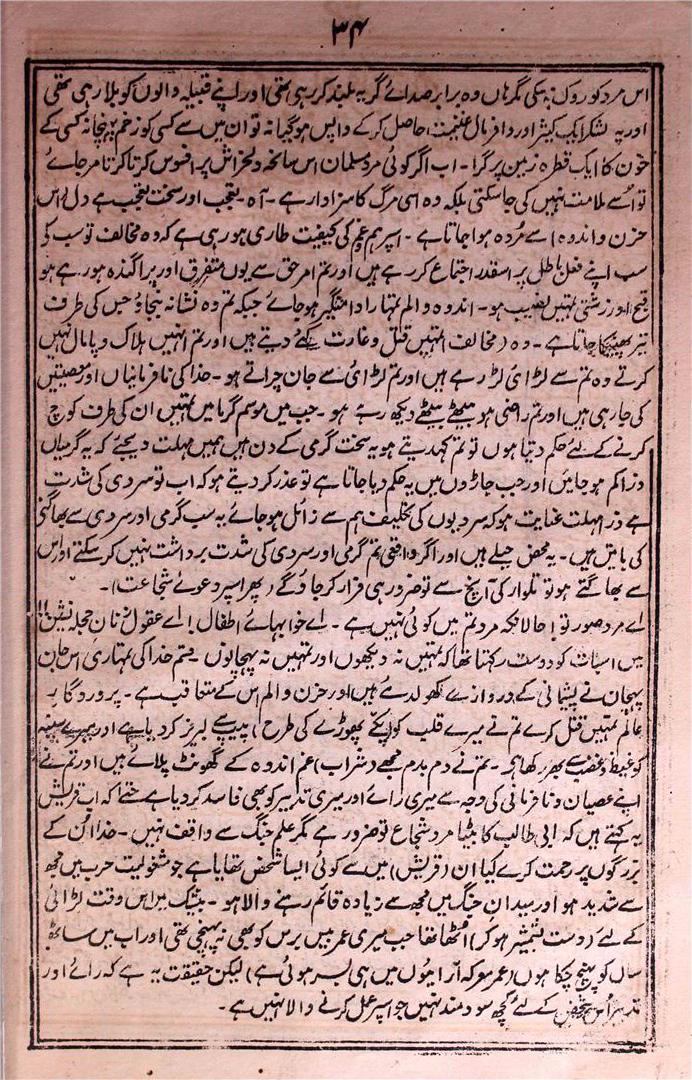 ۳۴
اس مرد کو روک نہ سکی مگر ہاں وہ برابر صدائے گریہ بلند کر رہی تھی اور اپنے قبیلہ والوں کو بلا رہی تھی
اور یہ لشکر ایک کثیر اور وافر مال غنیمت حاصل کر کے واپس ہو گیا نہ تو ان میں سے کسی کو زخم پہنچا نہ کسی کے
خون کا ایک قطرہ زمین پر گرا۔ اب اگر کوئی مرد مسلمان اس سانحۂ دلخراش پر افسوس کرتا کرتا مر جائے
تو اُسے ملامت نہیں کی جا سکتی بلکہ وہ اسی مرگ کا سزا وار ہے۔ آہ۔ تعجب اور سخت تعجب ہے دل (اس
حزن و اندوہ) سے مُردہ ہوا جاتا ہے۔ اسپر ہم غم کی کیفیت طاری ہو رہی ہے کہ وہ مخالف تو سب کی
سب اپنے فعل باطل پر اسقدر اجتماع کر رہے ہیں اور تم امر حق سے یوں متفرق اور پراگندہ ہو رہے ہو
قبح اور زشتی تمہیں نصیب ہو۔ اندوہ و الم تمہارا دامنگیر ہو جائے جبکہ تم وہ نشانہ بنجاؤ جس کی طرف
تیر پھینکا جاتا ہے۔ وہ (مخالف) تمہیں قتل و غارت کئے دیتے ہیں اور تم انہیں ہلاک و پامال نہیں
کرتے وہ تم سے لڑائی لڑ رہے ہیں اور تم لڑائی سے جان چراتے ہو۔ خدا کی نافرمانیاں اور معصیتیں
کی جا رہی ہیں اور تم راضی ہو بیٹھے بیٹھے دیکھ رہے ہو۔ جب میں موسم گرما میں تمہیں ان کی طرف کوچ
کرنے کے لئے حکم دیتا ہوں تو تم کہدیتے ہو یہ سخت گرمی کے دن ہیں ہمیں مہلت دیجئے کہ یہ گرمیاں
ذرا کم ہو جائیں اور جب جاڑوں میں یہ حکم دیا جاتا ہے تو عذر کر دیتے ہو کہ اب تو سردی کی شدت
ہے ذرا مہلت عنایت ہو کہ سردیوں کی تکلیف ہم سے زائل ہو جائے یہ سب گرمی اور سردی سے بھاگنے
کی باتیں ہیں۔ یہ محض حیلے ہیں اور اگر واقعی تم گرمی اور سردی کی شدت برداشت نہیں کر سکتے اور اس
سے بھاگتے ہو تو تلوار کی آنچ سے تو ضرور ہی فرار کر جاؤ گے (پھر اسپر دعوئے شجاعت)۔
اے مرد صورتو! حالانکہ مرد تم میں کوئی نہیں ہے۔ اے خوابہائے اطفال! اے عقول زنان حجلہ نشین!!
میں اسبات کو دوست رکھتا تھا کہ تمہیں نہ دیکھوں اور تمہیں نہ پہچانوں۔ قسم خدا کی تمہاری اس جان
پہچان نے پشیمانی کے دروازے کھولدئے ہیں اور حزن و الم اس کے متعاقب ہے۔ پروردگار
عالم تمہیں قتل کرے تم نے میرے قلب کو (پکے پھوڑے کی طرح) پیپ سے لبریز کر دیا ہے اور میرے سینہ
کو غیظ و غضب سے بھر رکھا ہے۔ تم نے دم بدم مجھے (شراب) غم اندوہ کے گھونٹ پلائے ہیں اور تم نے
اپنے عصیان و نافرمانی کی وجہ سے میری رائے اور میری تدبیر کو بھی فاسد کر دیا ہے حتےٰ کہ اب قریش
یہ کہتے ہیں کہ ابی طالب کا بیٹا مرد شجاع تو ضرور ہے مگر علم جنگ سے واقف نہیں۔ خدا ان کے
بزرگوں پر رحمت کرے کیا ان (قریش) میں سے کوئی ایسا شخص تھا یا ہے جو مشغولیت حرب میں مجھ
سے شدید ہو اور میدان جنگ میں مجھ سے زیادہ قائم رہنے والا ہو۔ بیشک میں اس وقت لڑائی
کے لئے (دست بشمشیر ہو کر) اُٹھا تھا جب میری عمر بیس برس کو بھی نہ پہنچی تھی اور اب میں ساٹھ
سال کو پہنچ چکا ہوں (عمر معرکہ آرائیوں میں ہی بسر ہوئی ہے) لیکن حقیقت یہ ہے کہ رائے اور
تدبیر اُس شخص کے لئے کچھ سود مند نہیں جو اسپر عمل کرنے والا نہیں ہے۔